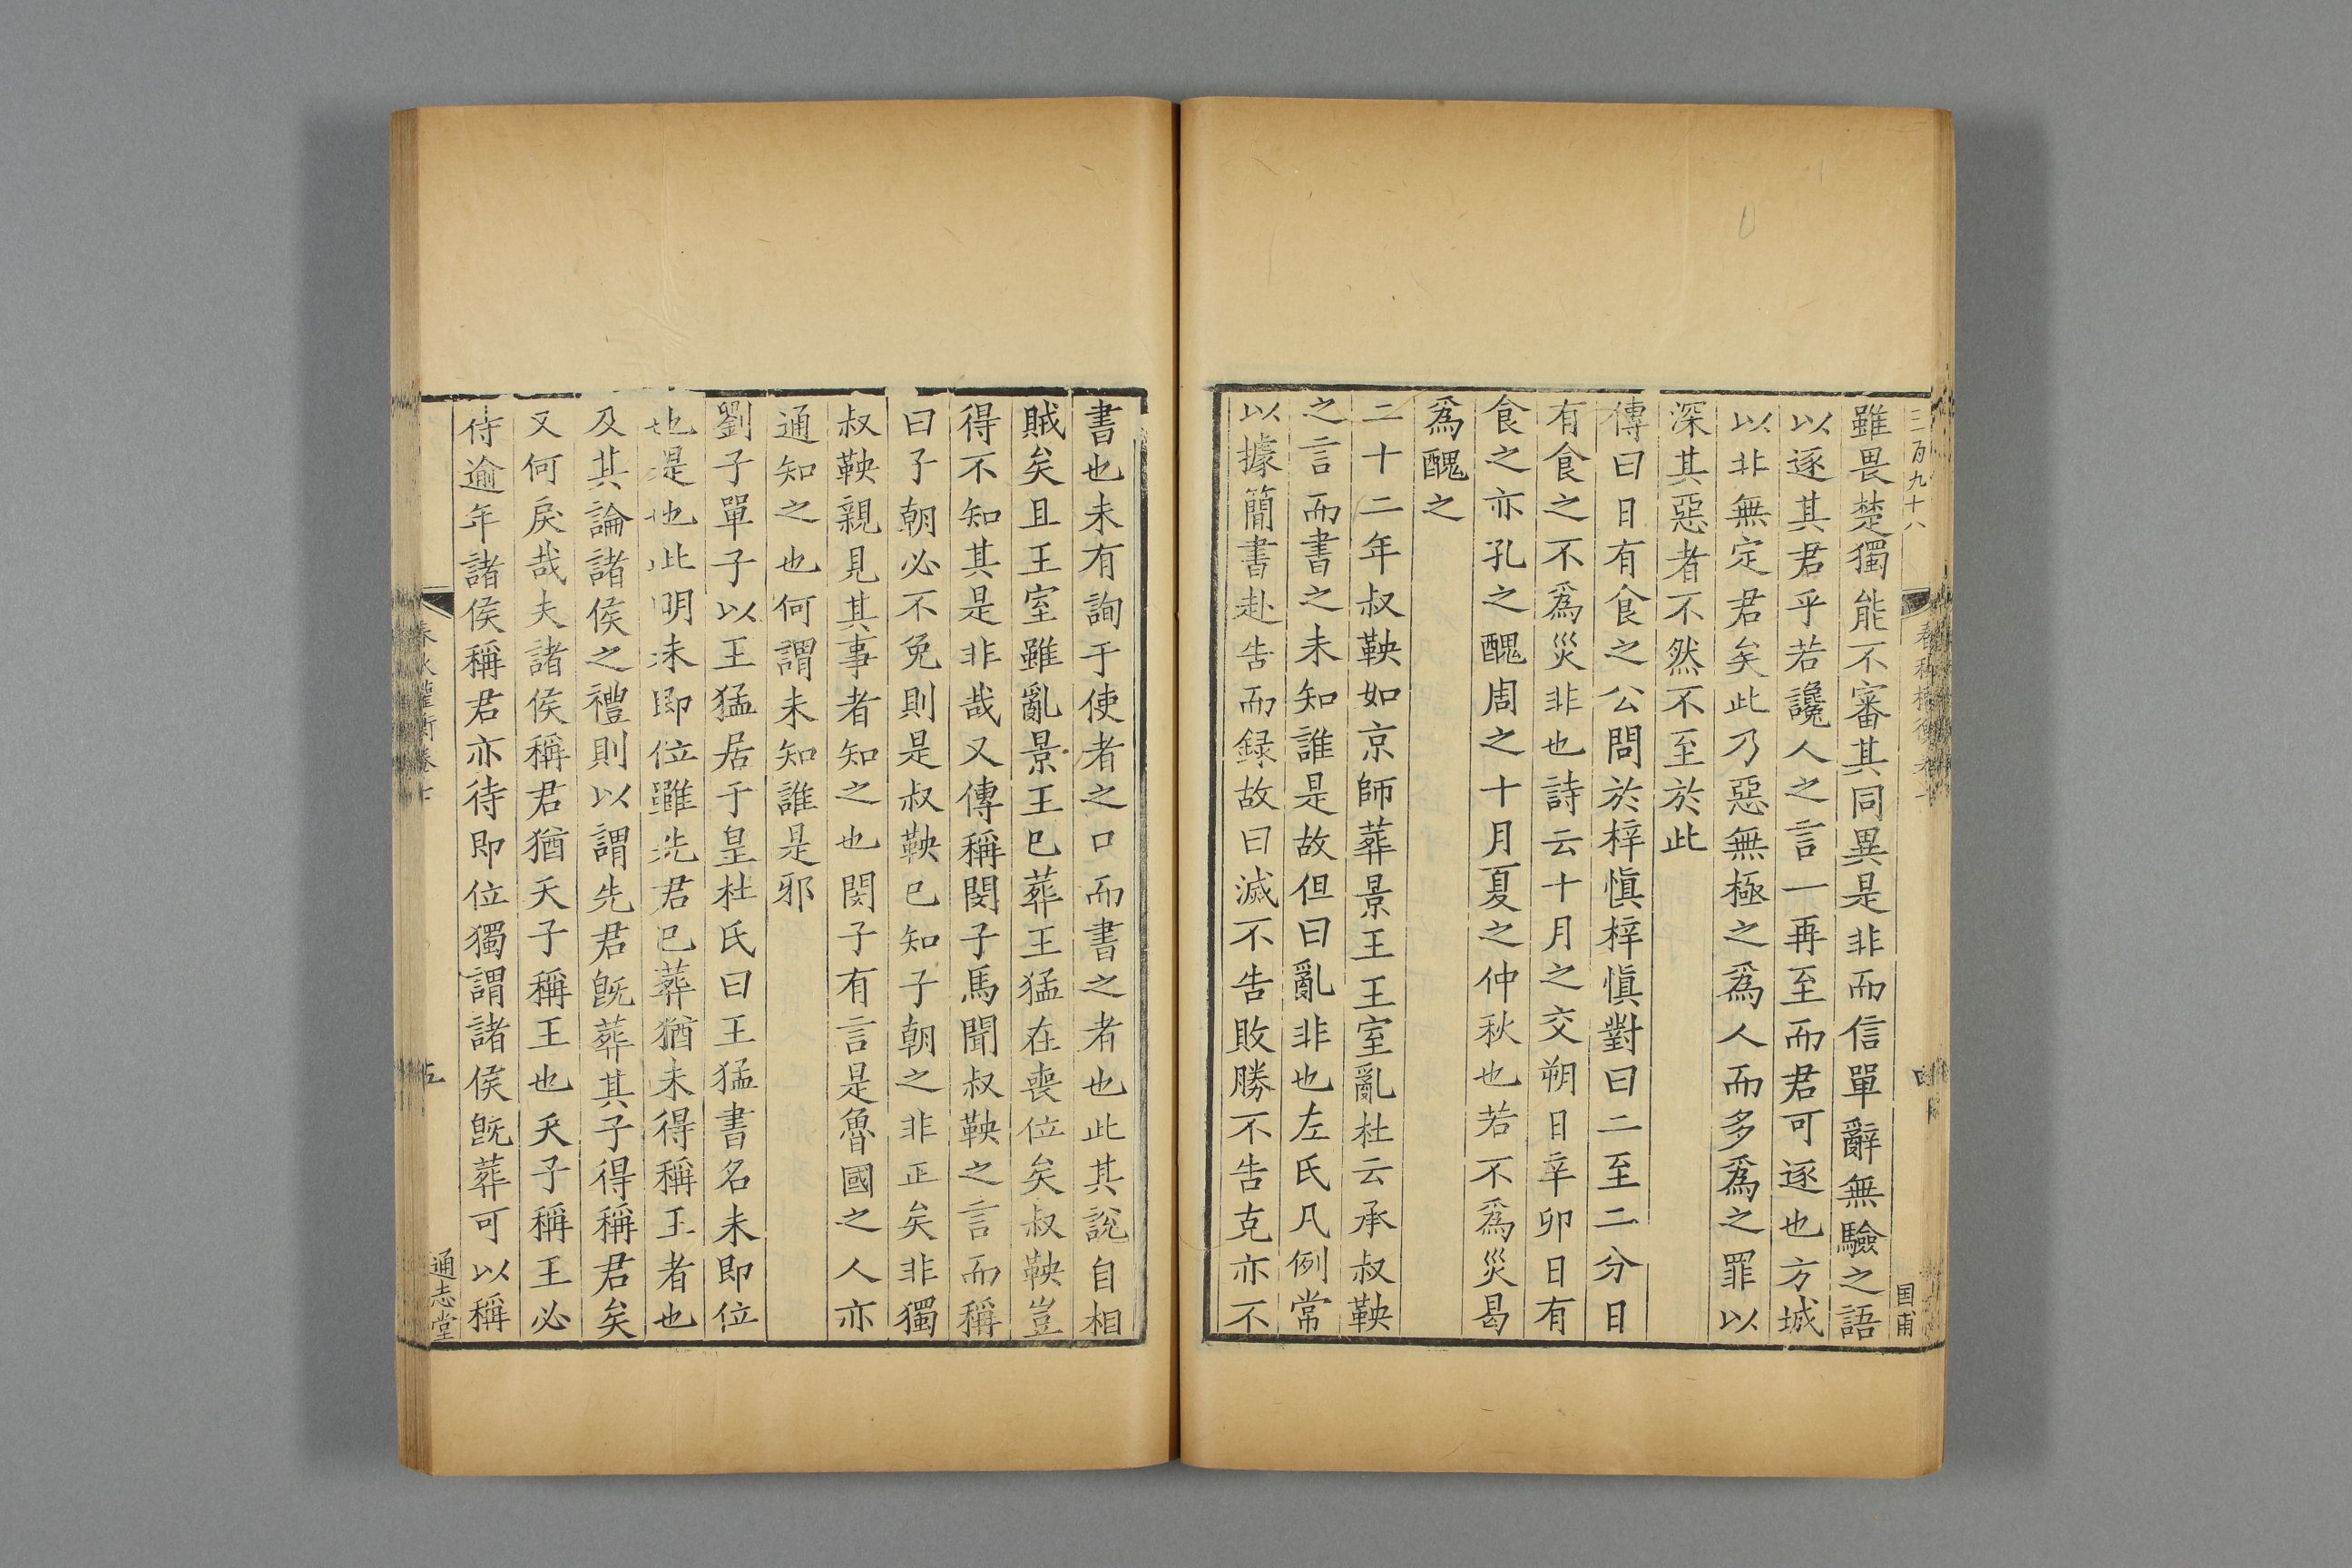 三百九十八
雖畏楚獨能不審其同異是非而信單辭無驗之語
以逐其君乎若讒人之言一再至而君可逐也方城
以非無定君矣此乃惡無極之爲人而多爲之罪以
深其惡者不然不至於此
傳曰日有食之公問於梓愼梓愼對曰二至二分日
有食之不爲災非也詩云十月之交朔日辛卯日有
食之亦孔之醜周之十月夏之仲秋也若不爲災曷
爲醜之
二十二年叔鞅如京師葬景王王室亂杜云承叔鞅
之言而書之未知誰是故但曰亂非也左氏凡例常
以據簡書赴告而録故曰滅不告敗勝不告克亦不
書也未有詢于使者之口而書之者也此其說自相
賊矣且王室雖亂景王已葬王猛在喪位矣叔鞅豈
得不知其是非哉又傳稱閔子馬聞叔鞅之言而稱
曰子朝必不免則是叔鞅已知子朝之非正矣非獨
叔鞅親見其事者知之也閔子有言是魯國之人亦
通知之也何謂未知誰是邪
劉子單子以王猛居于皇杜氏曰王猛書名未即位
也是也此明未即位雖先君已葬猶未得稱王者也
及其論諸侯之禮則以謂先君旣葬其子得稱君矣
又何戾哉夫諸侯稱君猶天子稱王也天子稱王必
待逾年諸侯稱君亦待即位獨謂諸侯旣葬可以稱
春秋權衡卷七
五
通志堂